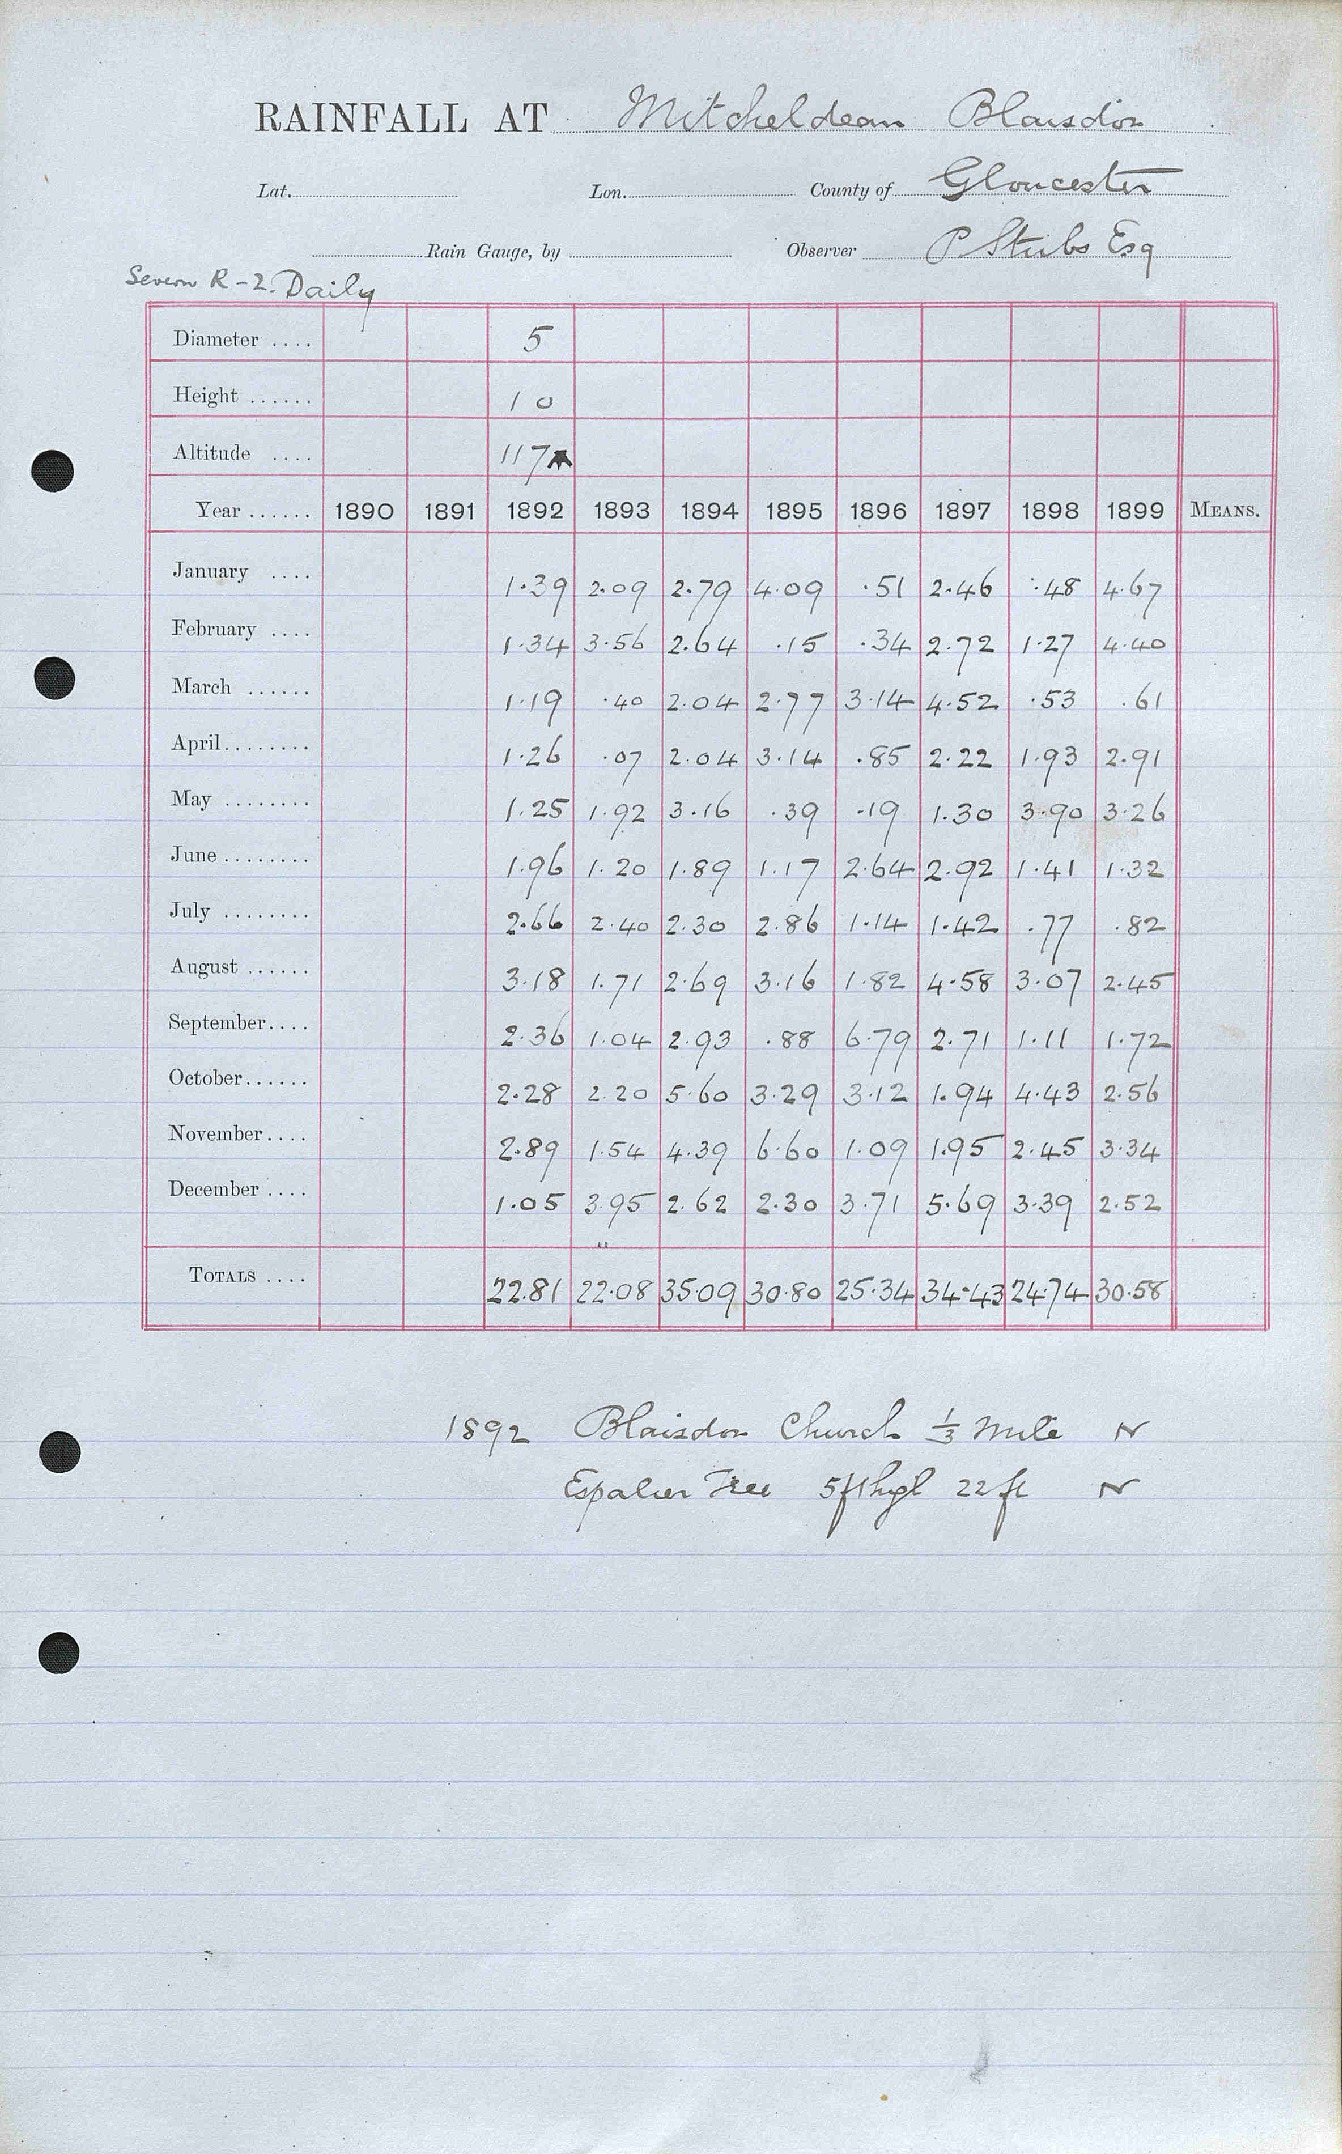 RAINFALL AT Mitcheldean Blaisdon
Lat. Lon. County of Gloucester
Rain Gauge, by Observer P Stubs Esq
Severn R - 2. Daily
Diameter .... 5
Height ...... 1 0
Altitude .... 117
Year ...... 1890 1891 1892 1893 1894 1895 1896 1897 1898 1899 MEANS.
January .... 1.39 2.09 2.79 4.09 .51 2.46 .48 4.67
February .... 1.34 3.56 2.64 .15 .34 2.72 1.27 4.40
March ...... 1.19 .40 2.04 2.77 3.14 4.52 .53 .61
April ........ 1.26 .07 2.04 3.14 .85 2.22 1.93 2.91
May ........ 1.25 1.92 3.16 .39 .19 1.30 3.90 3.26
June ........ 1.96 1.20 1.89 1.17 2.64 2.92 1.41 1.32
July ........ 2.66 2.40 2.30 2.86 1.14 1.42 .77 .82
August ...... 3.18 1.71 2.69 3.16 1.82 4.58 3.07 2.45
September.... 2.36 1.04 2.93 .88 6.79 2.71 1.11 1.72
October...... 2.28 2.20 5.60 3.29 3.12 1.94 4.43 2.56
November.... 2.89 1.54 4.39 6.60 1.09 1.95 2.45 3.34
December .... 1.05 3.95 2.62 2.30 3.71 5.69 3.39 2.52
TOTALS .... 22.81 22.08 35.09 30.80 25.34 34.43 24.74 30.58
1892 Blaisdon Church 1/3 Mile N
Espalier Tree 5ft high 22 ft N